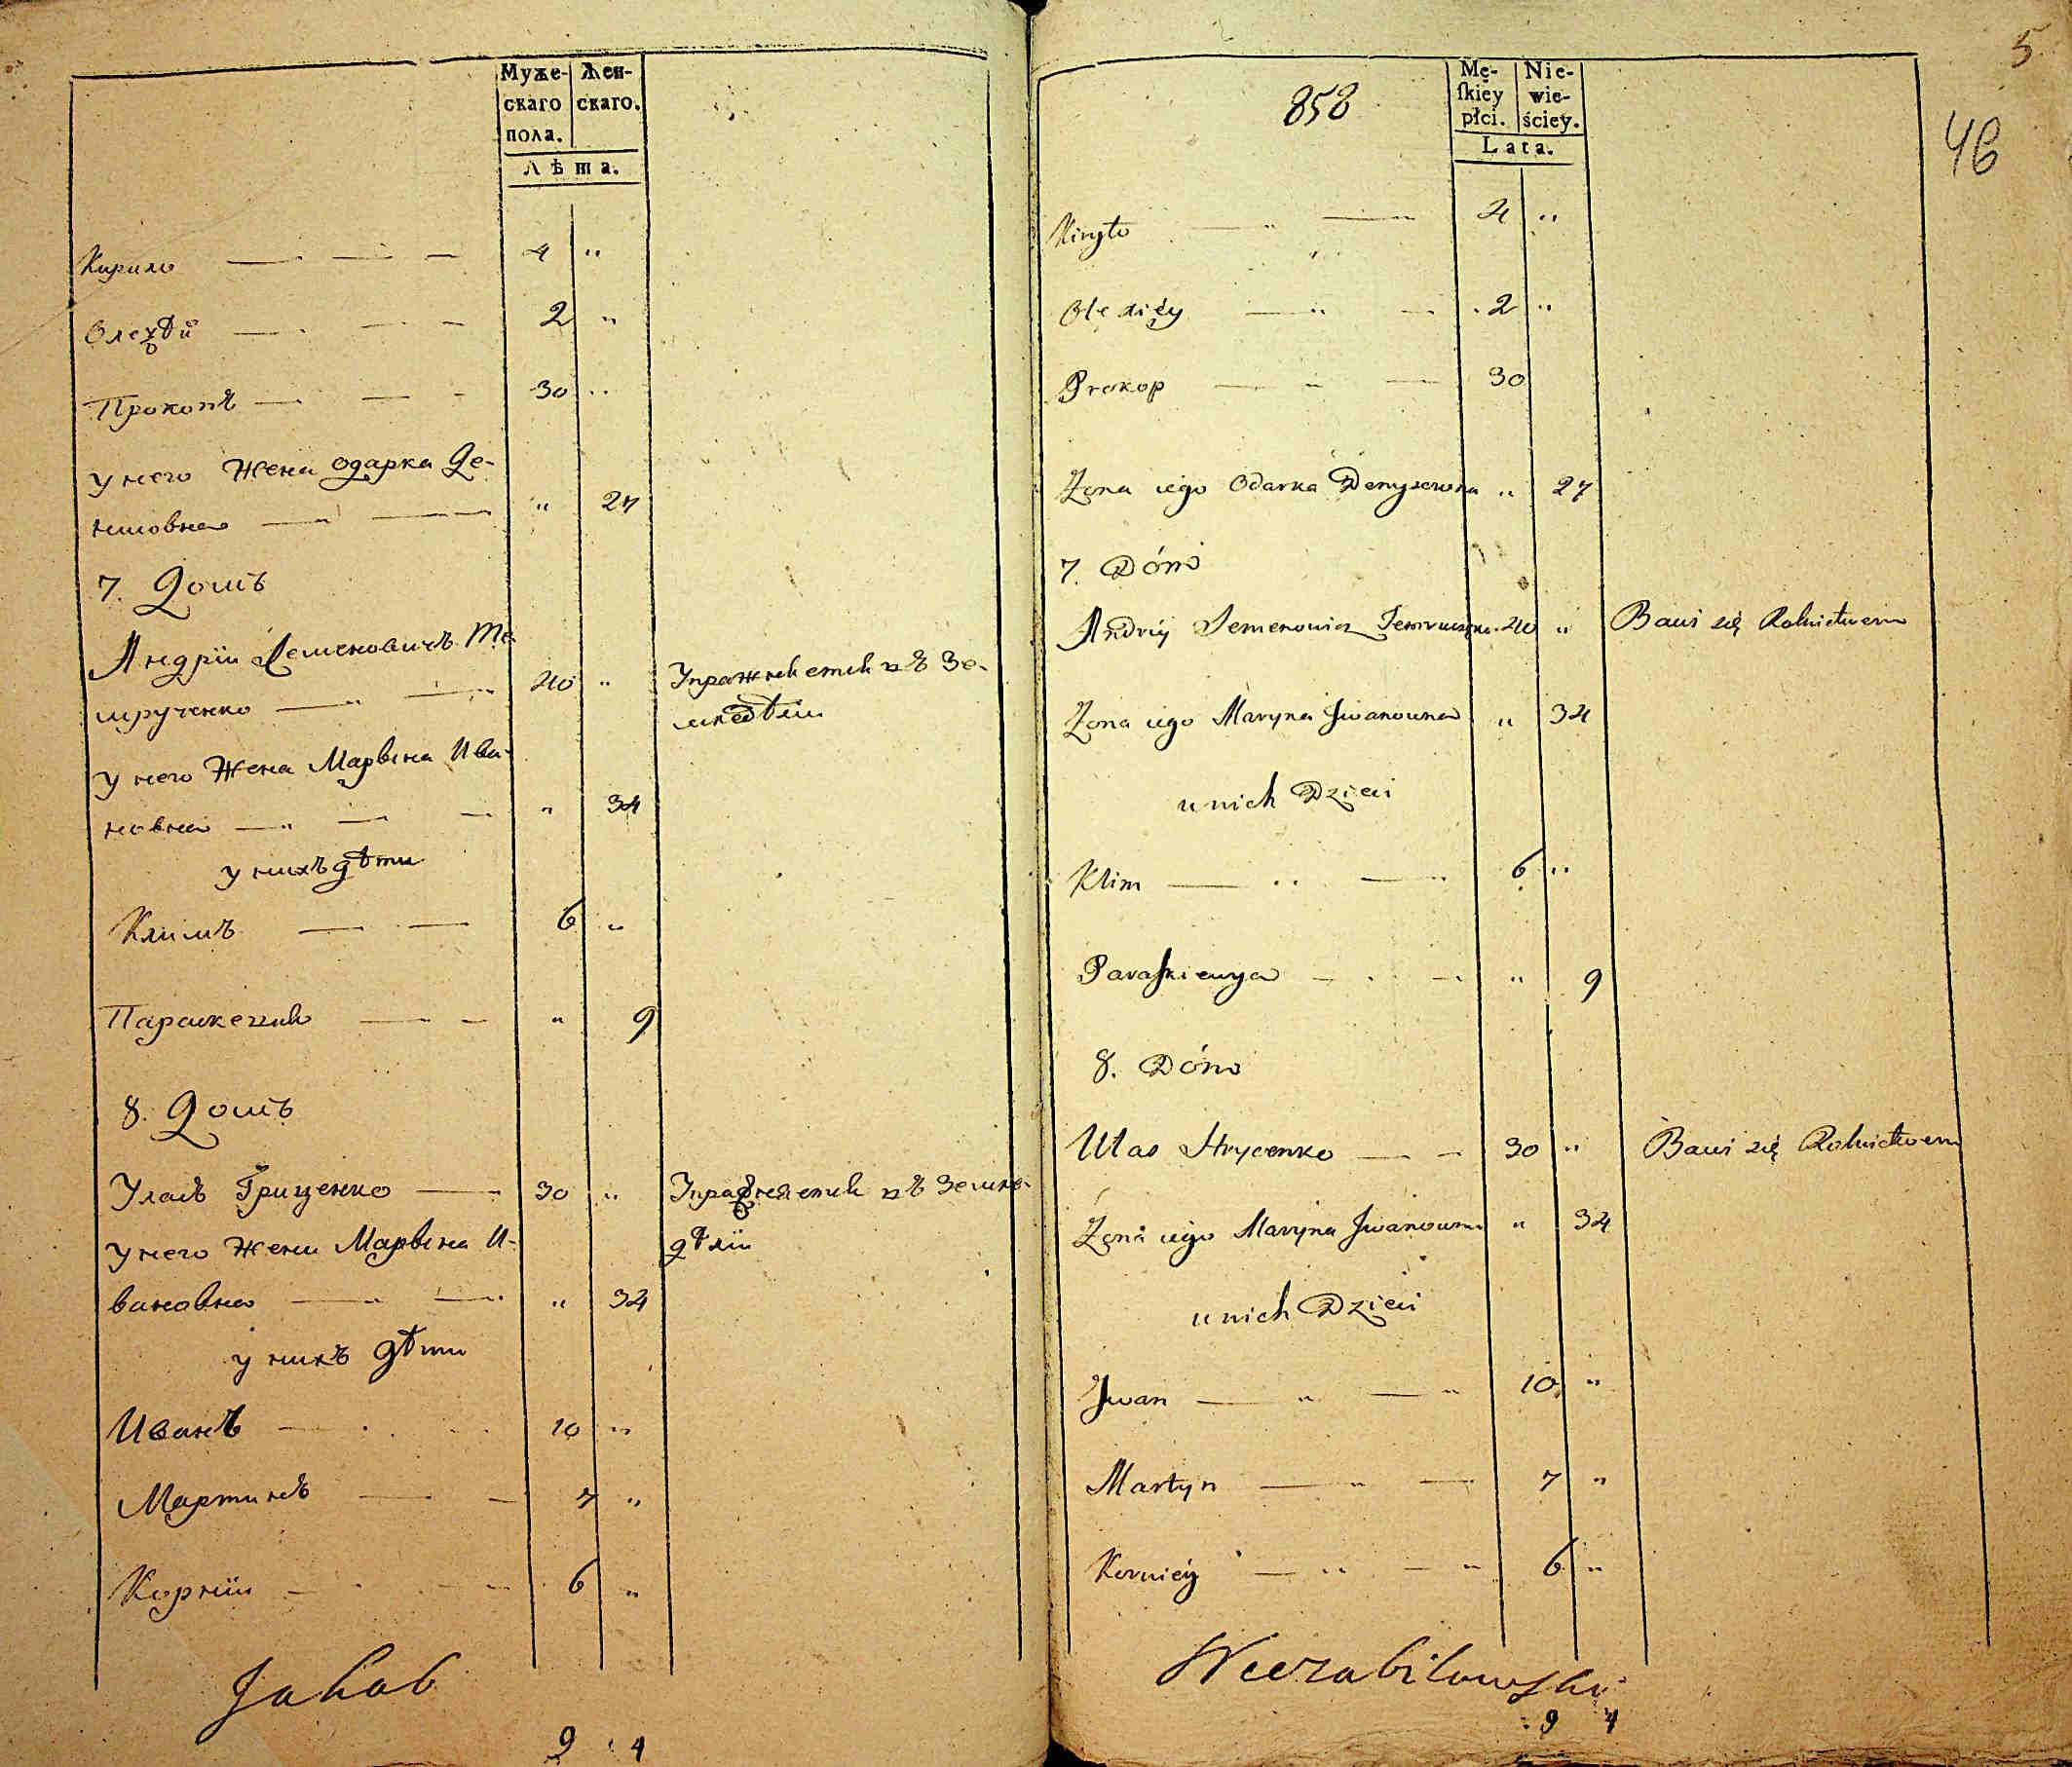 Муже-
скаго
пола.
Жен-
скаго.
Лѣта.
Кирило 4 "
Олехѣй 2 "
Прокопъ 30 "
у него Жена одарка Де-
нисовна " 27
7. Домъ
Андрій Семеновичъ Те-
мрученко 40 " Упражняется въ Зе-
мледѣлии
у него Жена Марына Ива-
новна " 34
у нихъ дѣти
Климъ 6 "
Параскевия " 9
8. Домъ
Уласъ Грищенко 30 " Упражняется въ Земле-
у него Жена Марына И- дѣлій
вановна " 34
у нихъ дѣти
Иванъ 10 "
Мартинъ 7 "
Корній 6 "
Jakób
9 4
5
46
858
Mę-
ſkiey
płci.
Nie-
wie-
ściey.
Lata.
Kiryło 4 "
Olexiéy 2 "
Prokop 30
Żona iego Odarka Denysowna " 27
7. Dóm
Andriy Semenowicz 40 " Bawi się Rolnictwem
Żona iego Maryna Jwanowna " 34
u nich Dzieci
Klim 6 "
Paraſkiewya " 9
8. Dóm
Ułas Hrycenko 30 " Bawi się Rolnictwem
Żona iego Maryna Jwanowna " 34
u nich Dzieci
Jwan 10 "
Martyn 7 "
Korniéy 6 "
9 4